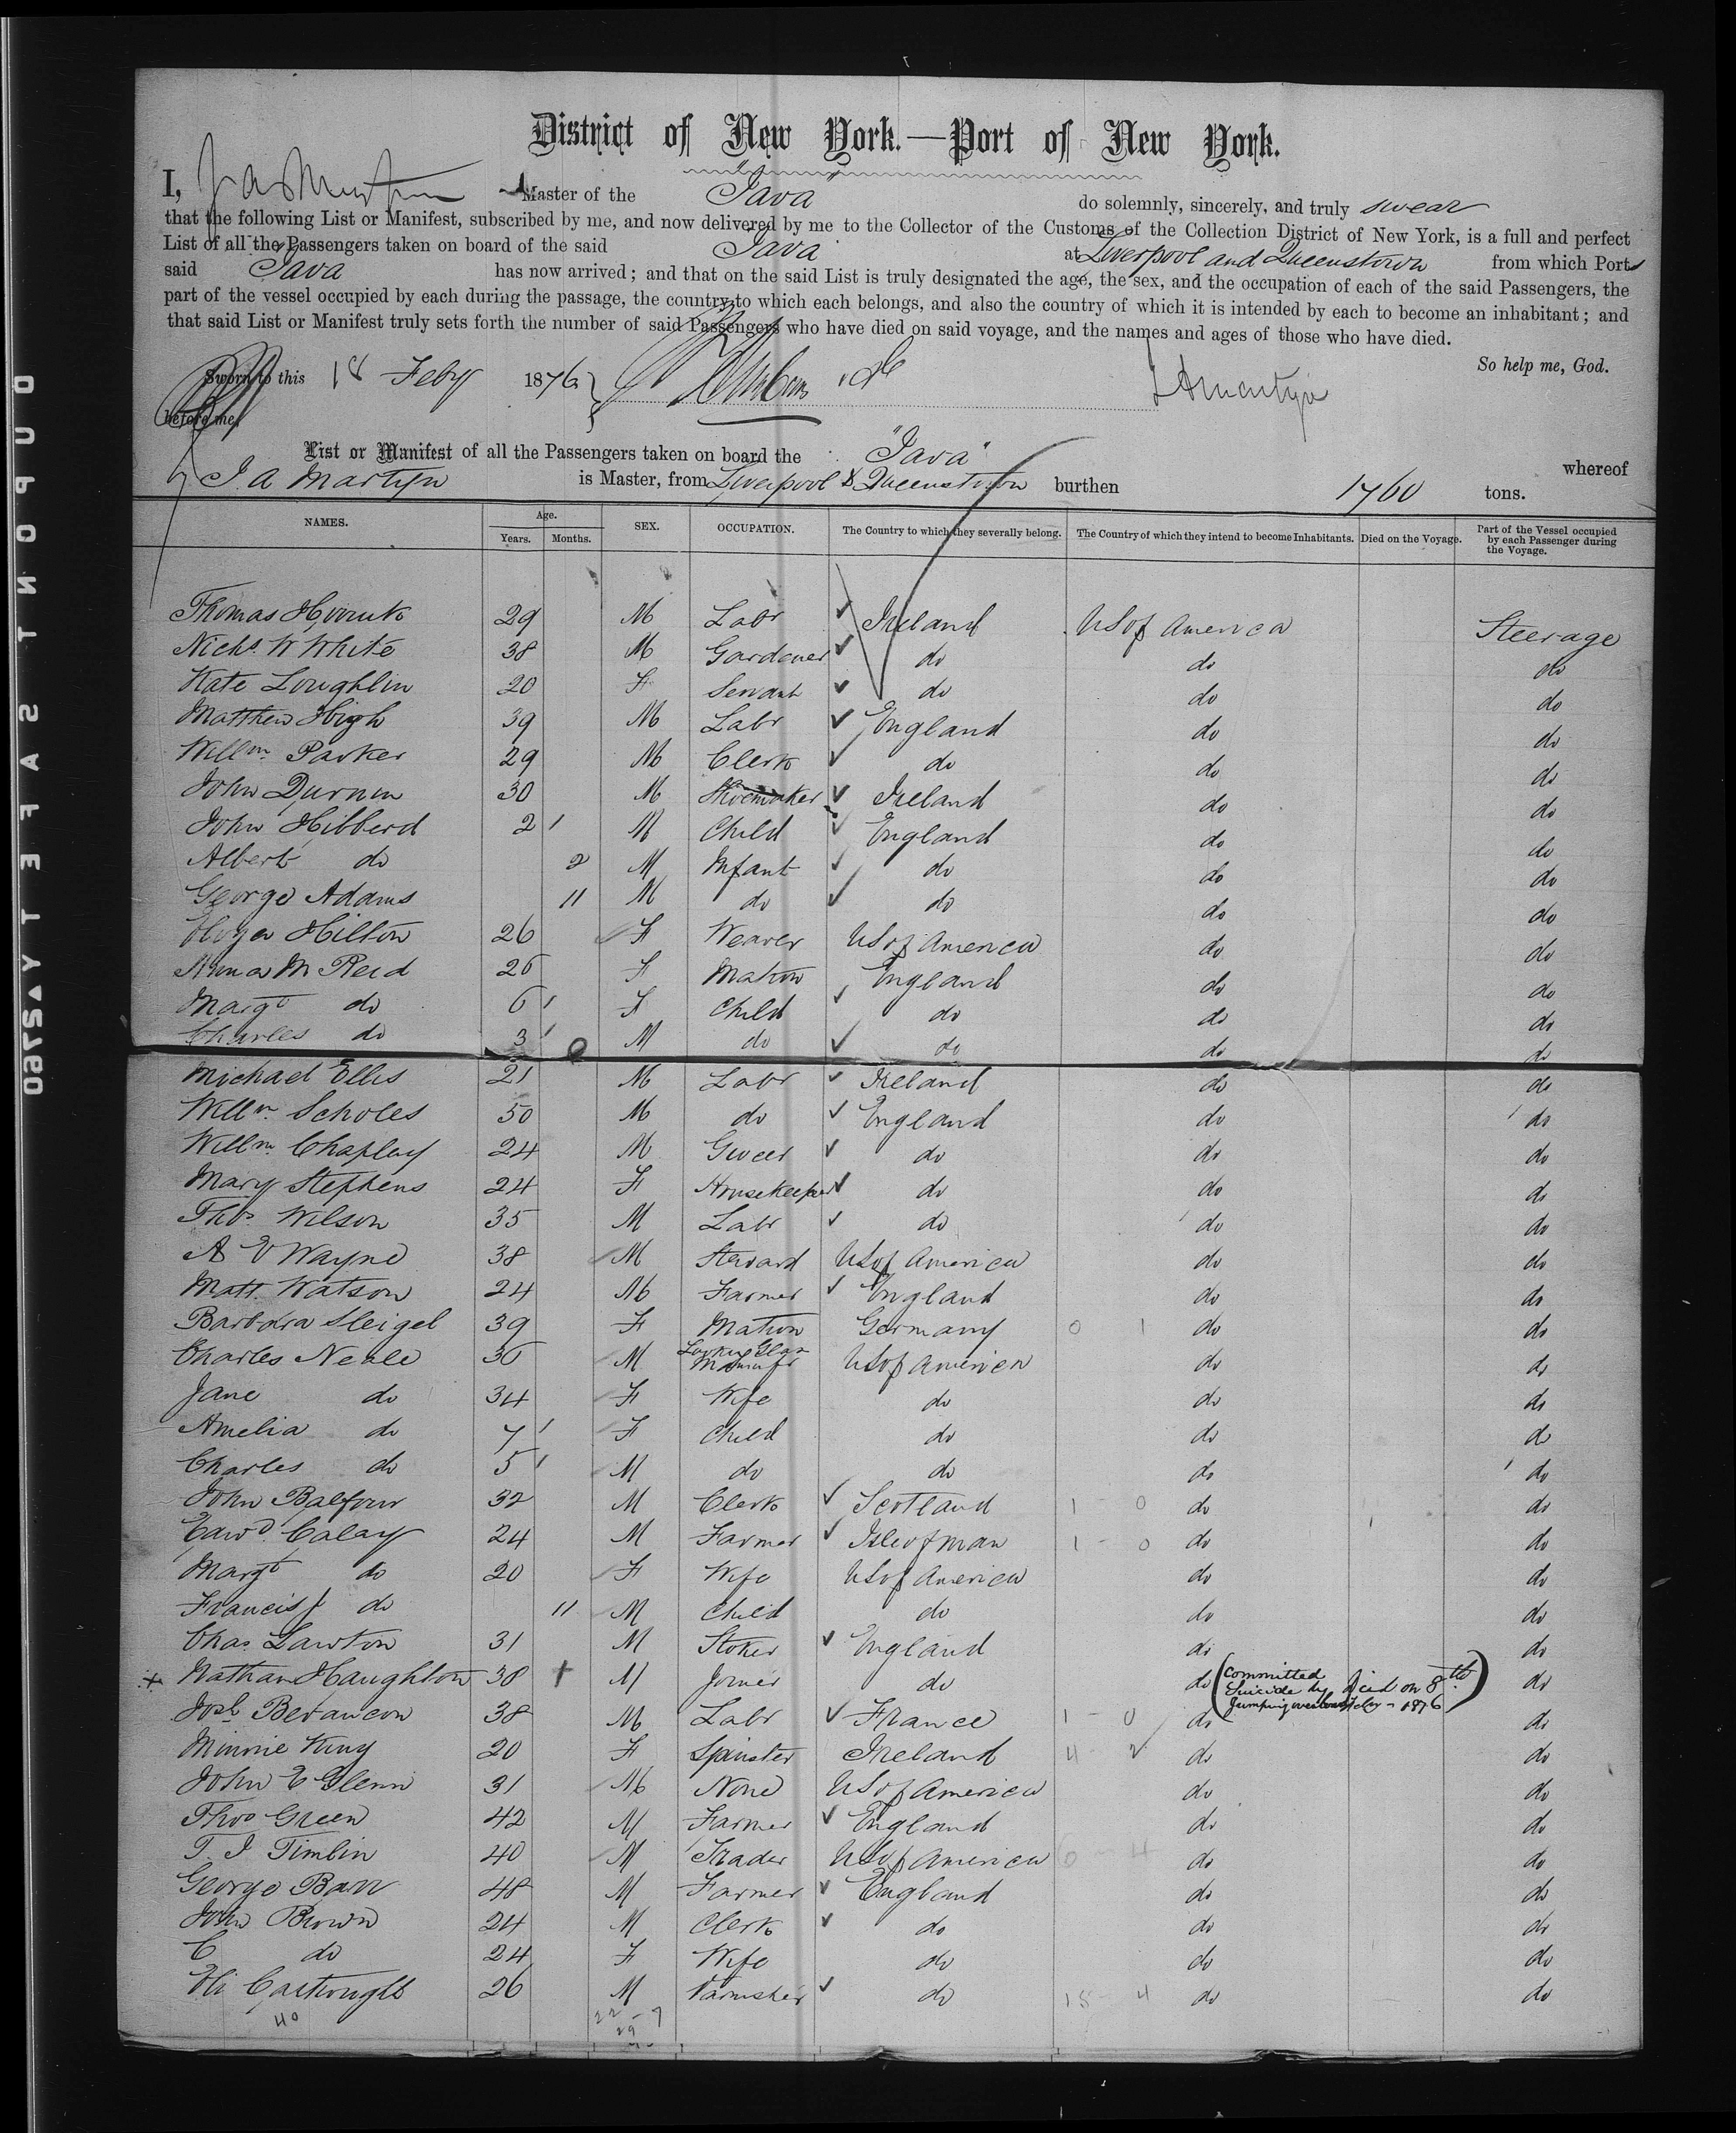 District of New York.—Port of New York.
I, Jas Martyn Master of the "Java" do solemnly, sincerely, and truly swear
that the following List or Manifest, subscribed by me, and now delivered by me to the Collector of the Customs of the Collection District of New York, is a full and perfect
List of all the Passengers taken on board of the said Java at Liverpool and Queenstown from which Ports
said Java has now arrived; and that on the said List is truly designated the age, the sex, and the occupation of each of the said Passengers, the
part of the vessel occupied by each during the passage, the country to which each belongs, and also the country of which it is intended by each to become an inhabitant; and
that said List or Manifest truly sets forth the number of said Passengers who have died on said voyage, and the names and ages of those who have died.
So help me, God.
Sworn to this 18 Feby 1876
before me, J A Martyn
List or Manifest of all the Passengers taken on board the "Java" whereof
J. A Martyn is Master, from Liverpool & Queenstown burthen 1760 tons.
NAMES. Age. Years. Months. SEX. OCCUPATION. The Country to which they severally belong. The Country of which they intend to become Inhabitants. Died on the Voyage. Part of the Vessel occupied by each Passenger during the Voyage.
Thomas 29 M Labr Ireland US of America Steerage
Nichs. W White 38 M Gardener do do do
Kate Loughlin 20 F Servant do do do
Matthew High 39 M Labr England do do
Willm. Parker 29 M Clerk do do do
John Durnin 30 M Shoemaker Ireland do do
John Hibberd 2 M Child England do do
Albert do 2 M Infant do do do
George Adams 11 M do do do do
Hilton 26 F Weaver US of America do do
Anna M Reid 26 F Matron England do do
Margt do 6 F Child do do do
Charles do 3 M do do do do
Michael Ellis 21 M Labr Ireland do do
Willm. Scholes 50 M do England do do
Willm. Chaplay 24 M Grocer do do do
Mary Stephens 24 F Housekeeper do do do
Thos Wilson 35 M Labr do do do
A E Wayne 38 M Steward US of America do do
Matt. Watson 24 M Farmer England do do
Barbara Sleigel 39 F Matron Germany 0 1 do do
Charles Neale 36 M Looking Glass Manufr US of America do do
Jane do 34 F Wife do do do
Amelia do 7 F Child do do do
Charles do 5 M do do do do
John Balfour 32 M Clerk Scotland 1 - 0 do do
Edwd. Calay 24 M Farmer Isle of man 1 - 0 do do
Margt do 20 F Wife US of America do do
Francis J do 11 M Child do do do
Chas. Lawton 31 M Stoker England do do
+ Nathan Haughton 38 + M Joiner do do (Committed Suicide by Jumping overboard Died on 8th Feby - 1876) do
Josh Betancon 38 M Labr France 1 - 0 do do
Minnie King 20 F Spinster Ireland 4 - 2 do do
John E Glenn 31 M None US of America do do
Thos Green 42 M Farmer England do do
T. J Timlin 40 M Trader US of America 6 - 4 do do
George Barr 48 M Farmer England do do
John Brown 24 M Clerk do do do
C do 24 F Wife do do do
Eli Cartwright 26 M Varnisher do 15 - 4 do do
40 22 - 7
29
DUPONT SAFETY